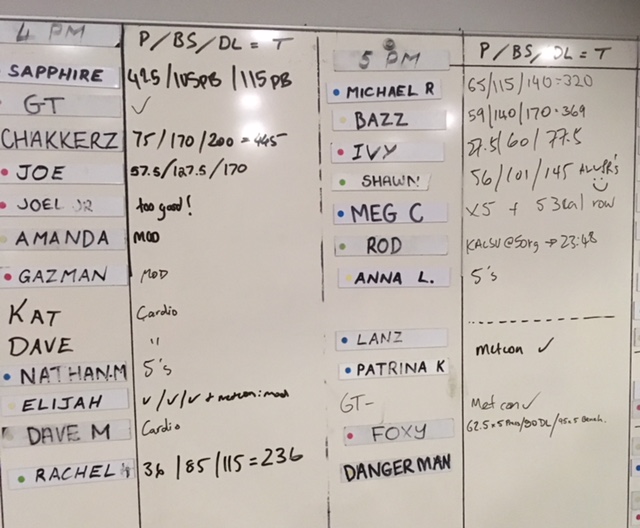 4 PM P/BS/DL = T
SAPPHIRE 42.5/105PB/115PB
GT ✓
CHAKKERZ 75/170/200 = 445
JOE 57.5/127.5/170
JOEL JR too good!
AMANDA MOD
GAZMAN MOD
KAT Cardio
DAVE "
NATHAN.M 5's
ELIJAH ✓/✓/✓ + metcon: mod
DAVE M Cardio
RACHEL 36/85/115 = 236
5 PM P/BS/DL = T
MICHAEL R 65/115/140=320
BAZZ 59/140/170=369
IVY 27.5/60/77.5
SHAWN 56/101/145
MEG C x5 + 53cal row
ROD @50kg → 23:48
ANNA L. 5's
LANZ metcon ✓
PATRINA K
GT- Metcon ✓
FOXY 62.5x5 /90DL/95x5 Bench.
DANGERMAN